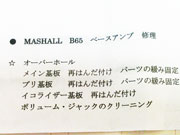 ● MASHALL B65 ベースアンプ 修理
☆ オーバーホール
メイン基板 再はんだ付け パーツの緩み固定
プリ基板 再はんだ付け パーツの緩み固定
イコライザー基板 再はんだ付け
ボリューム・ジャックのクリーニング